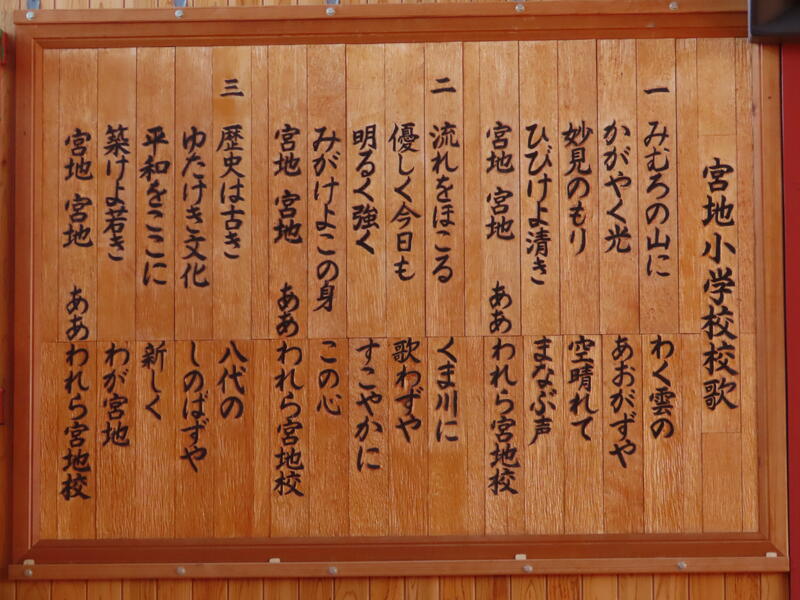 宮地小学校校歌
一 みむろの山に わく雲の
かがやく光 あおがずや
妙見のもり 空晴れて
ひびけよ清き まなぶ声
宮地 宮地 ああわれら宮地校
二 流れをほこる くま川に
優しく今日も 歌わずや
明るく強く すこやかに
みがけよこの身 この心
宮地 宮地 ああわれら宮地校
三 歴史は古き 八代の
ゆたけき文化 しのばずや
平和をここに 新しく
築けよ若き わが宮地
宮地 宮地 ああわれら宮地校